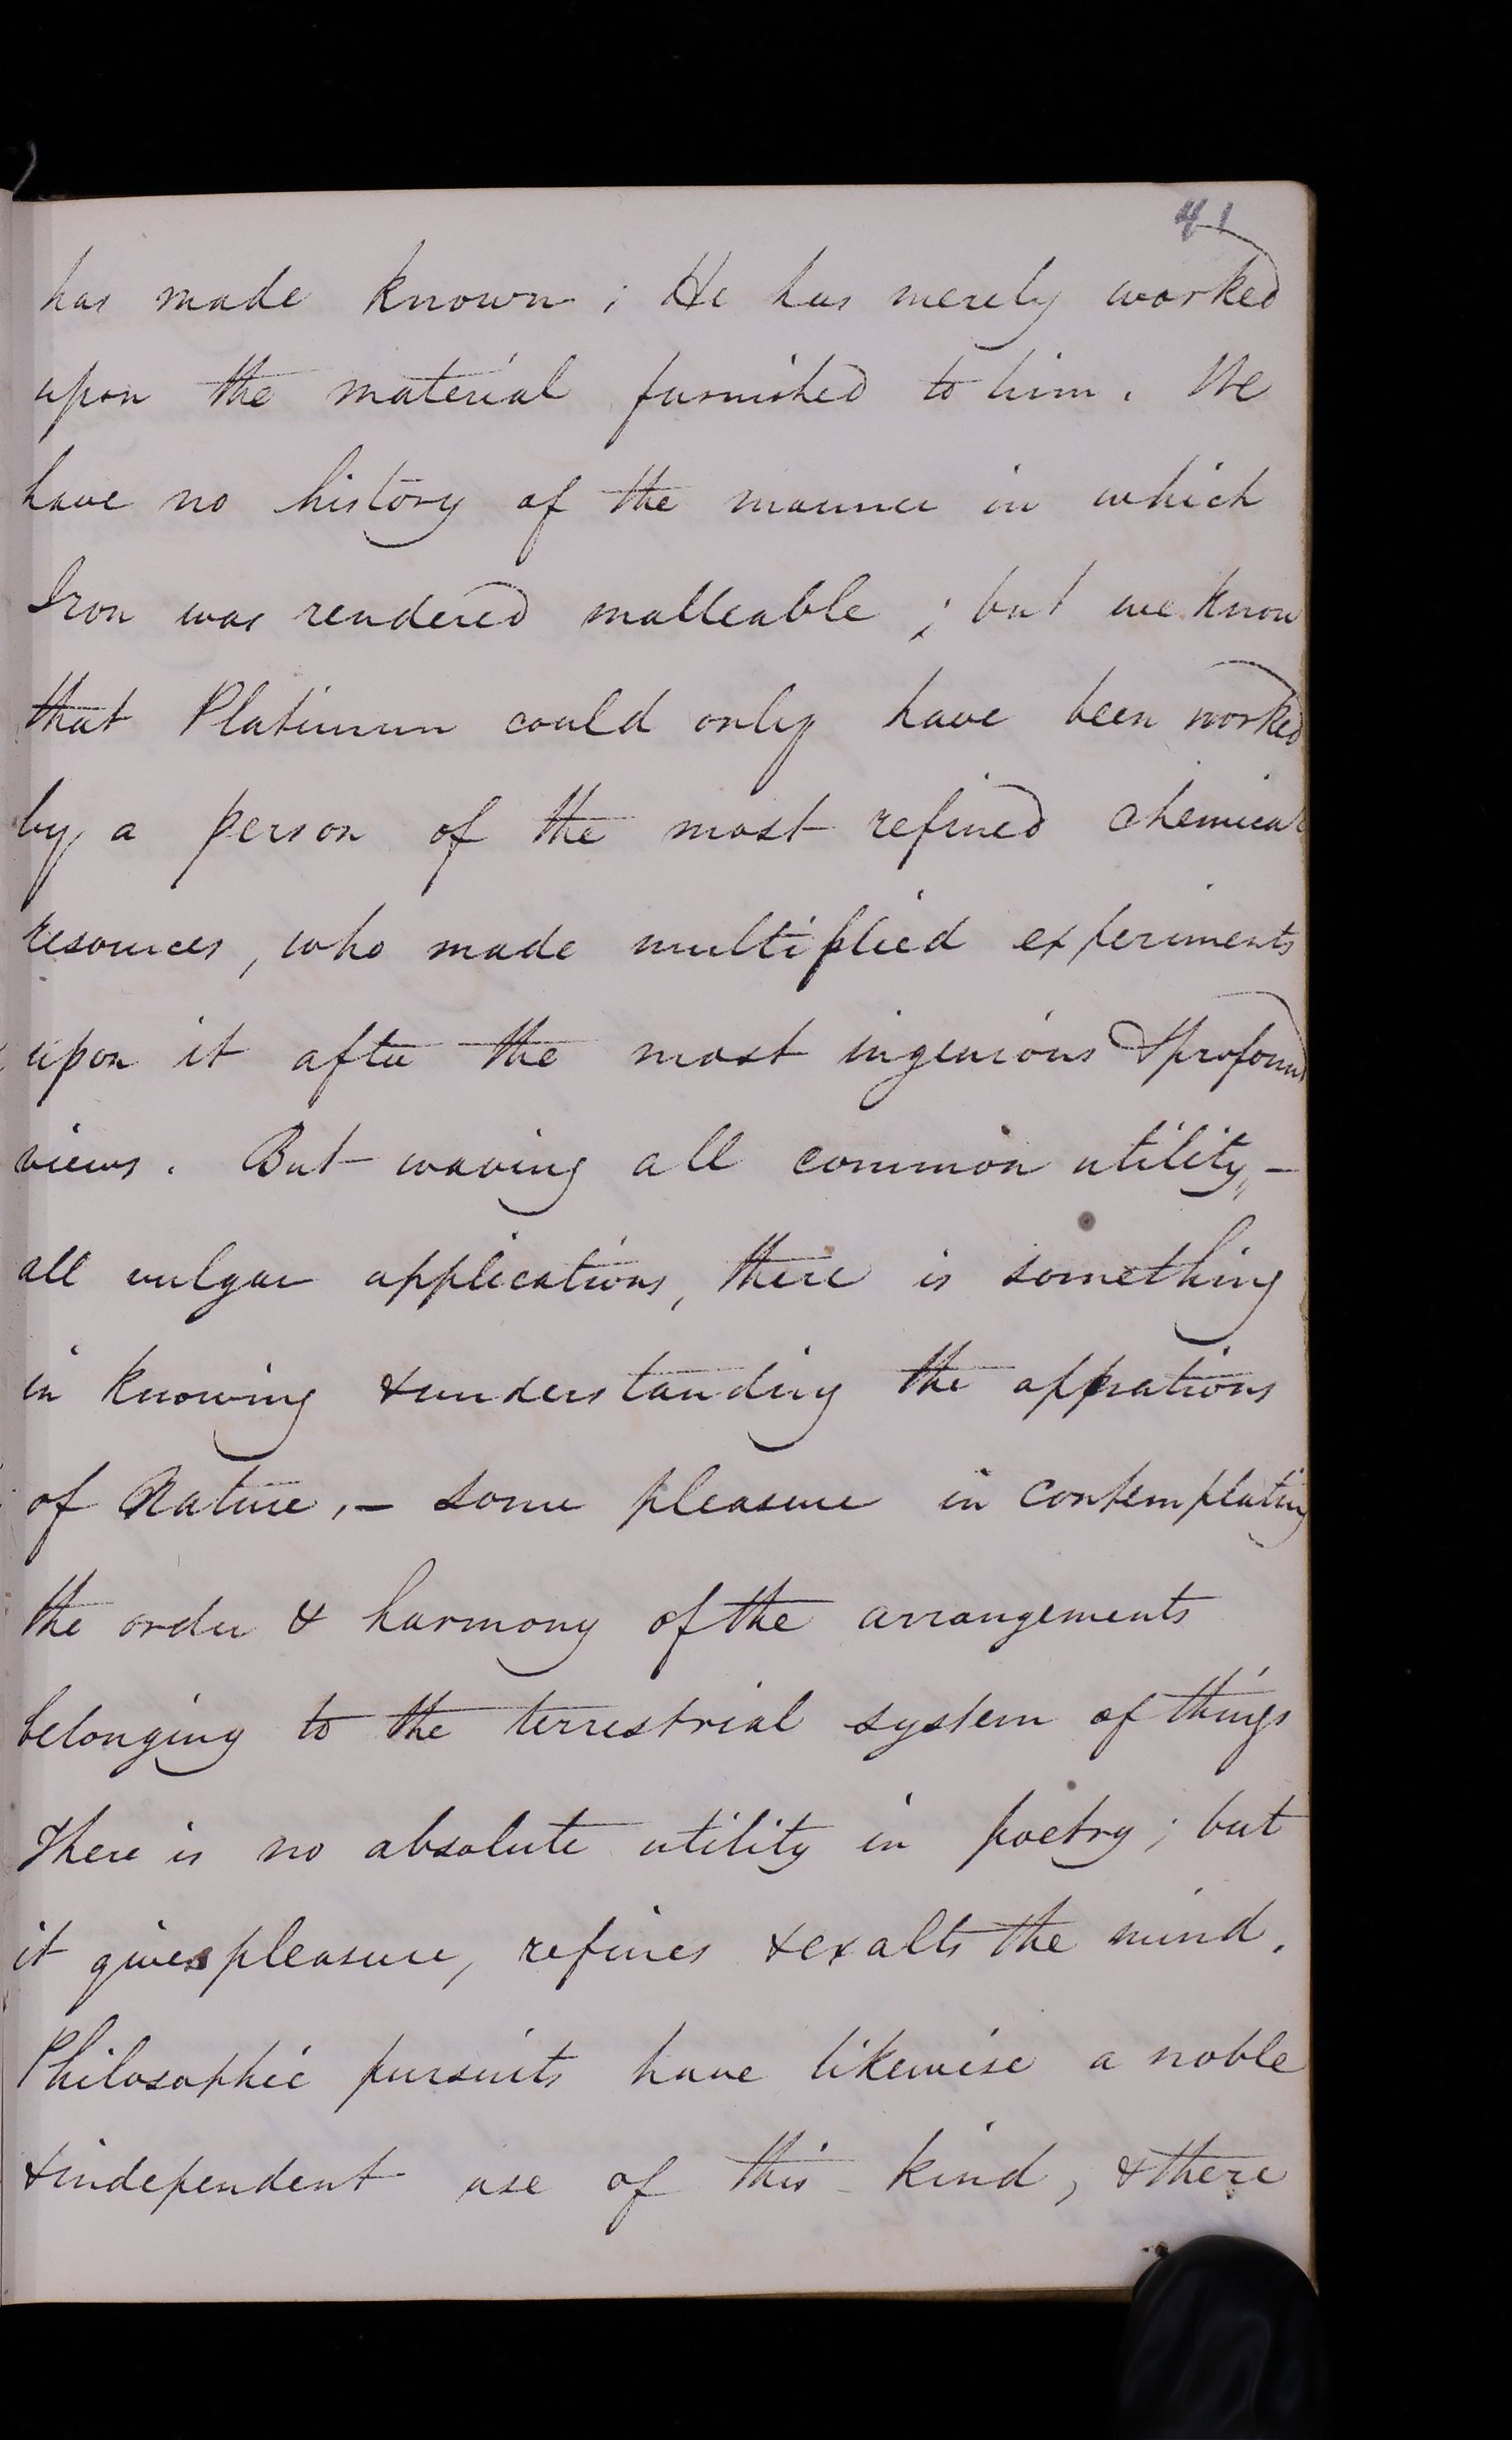 41
has made known; He has merely worked
upon the material furnished to him. We
have no history of the manner in which
Iron was rendered malleable; but we know
that Platinum could only have been worked
by a person of the most refined chemical
resources, who made multiplied experiments
upon it after the most ingenious & profound
views. But waving all common utility, -
all vulgar applications, there is something
in knowing & understanding the opperations
of Nature, - some pleasure in contemplating
the order & harmony of the arrangements
belonging to the terrestrial system of things
There is no absolute utility in poetry; but
it gives pleasure, refines & exalts the mind.
Philosophic pursuits have likewise a noble
& independent use of this kind, & there